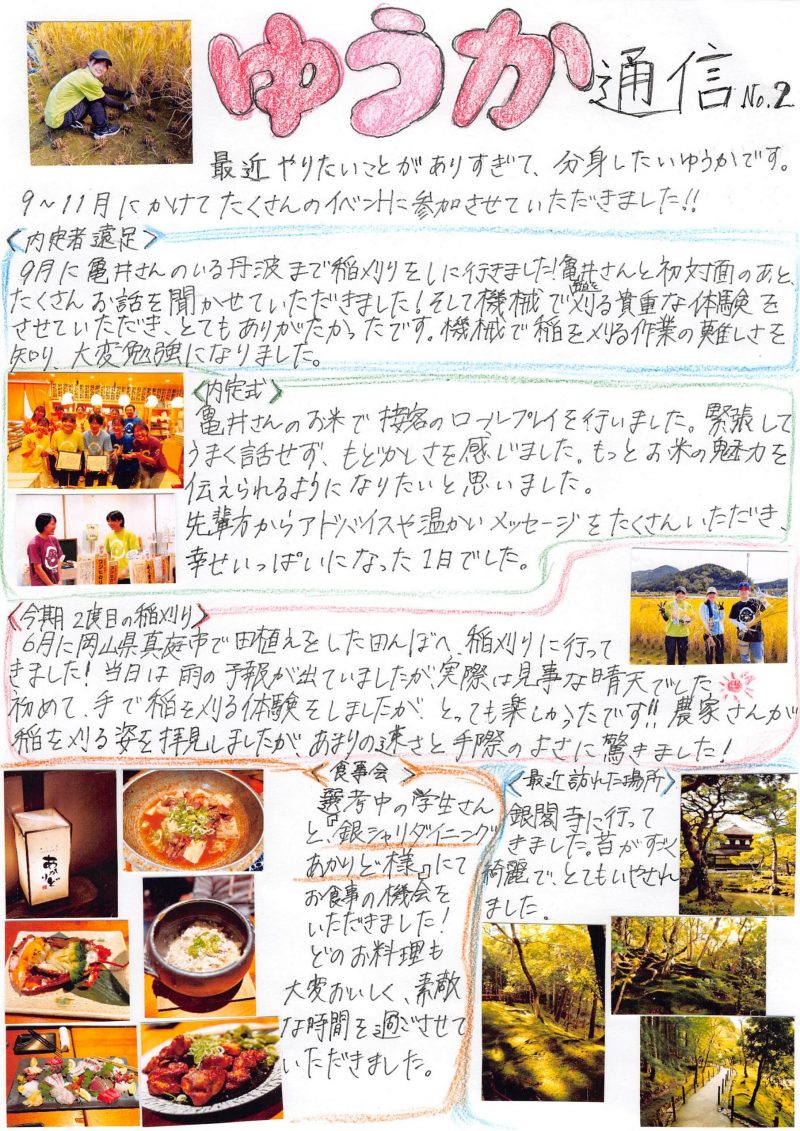 ゆうか通信 No.2
最近やりたいことがありすぎて、分身したいゆうかです。
9〜11月にかけてたくさんのイベントに参加させていただきました!!
<内定者遠足>
9月に亀井さんのいる丹波まで稲刈りをしに行きました!亀井さんと初対面のあと、
たくさんお話を聞かせていただきました!そして機械で稲を刈る貴重な体験を
させていただき、とてもありがたかったです。機械で稲を刈る作業の難しさを
知り、大変勉強になりました。
<内定式>
亀井さんのお米で接客のロールプレイを行いました。緊張して
うまく話せず、もどかしさを感じました。もっとお米の魅力を
伝えられるようになりたいと思いました。
先輩方からアドバイスや温かいメッセージをたくさんいただき、
幸せいっぱいになった1日でした。
<今期2度目の稲刈り>
6月に岡山県真庭市で田植えをした田んぼへ、稲刈りに行って
きました!当日は雨の予報が出ていましたが、実際は見事な晴天でした
初めて、手で稲を刈る体験をしましたが、とっても楽しかったです!!農家さんが
稲を刈る姿を拝見しましたが、あまりの速さと手際のよさに驚きました!
<食事会>
選考中の学生さん
と、『銀シャリダイニング
あかりど様』にて
お食事の機会を
いただきました!
どのお料理も
大変おいしく、素敵
な時間を過ごさせて
いただきました。
<最近訪れた場所>
銀閣寺に行って
きました。苔がすごく
綺麗で、とてもいやされ
ました。
あかりど